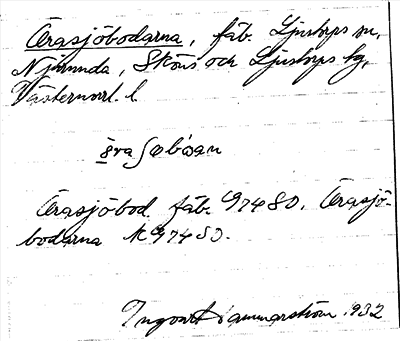 Örasjöbodarna, fäb. Ljustorps sn,
Njurunda, Sköns och Ljustorps hg,
Västernorrl. l.
Örasjöbod. fäb. G9748O. Örasjö-
bodarna K G9748O.
Ingvar Hammarström 1932